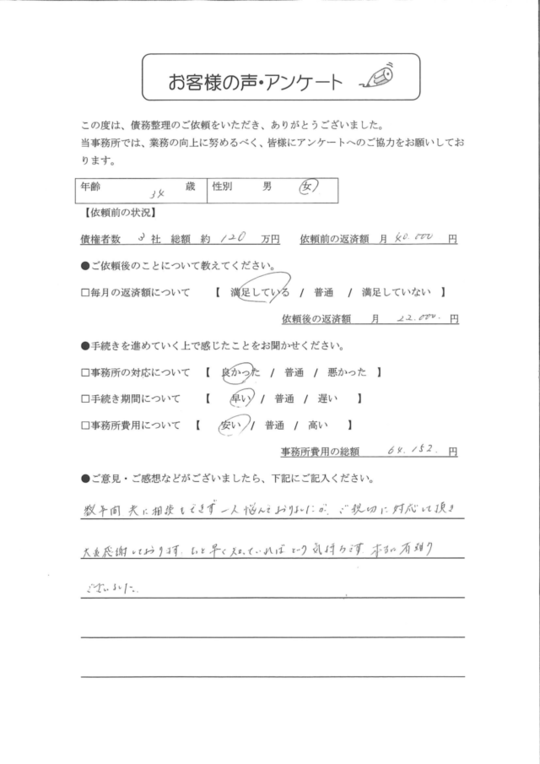 お客様の声・アンケート
この度は、債務整理のご依頼をいただき、ありがとうございました。
当事務所では、業務の向上に努めるべく、皆様にアンケートへのご協力をお願いしてお
ります。
年齢 34 歳 性別 男 女
【依頼前の状況】
債権者数 3 社 総額 約 120 万円 依頼前の返済額 月 40.000 円
●ご依頼後のことについて教えてください。
□毎月の返済額について 【 満足している / 普通 / 満足していない 】
依頼後の返済額 月 22.000. 円
●手続きを進めていく上で感じたことをお聞かせください。
□事務所の対応について 【 良かった / 普通 / 悪かった 】
□手続き期間について 【 早い / 普通 / 遅い 】
□事務所費用について 【 安い / 普通 / 高い 】
事務所費用の総額 64.152. 円
●ご意見・ご感想などがございましたら、下記にご記入ください。
数年間 夫に相談もできず 一人悩んでおりましたが、ご親切に対応して頂き
大変感謝しております。もっと早く知っていればという気持ちです。本当に有難う
ございました。